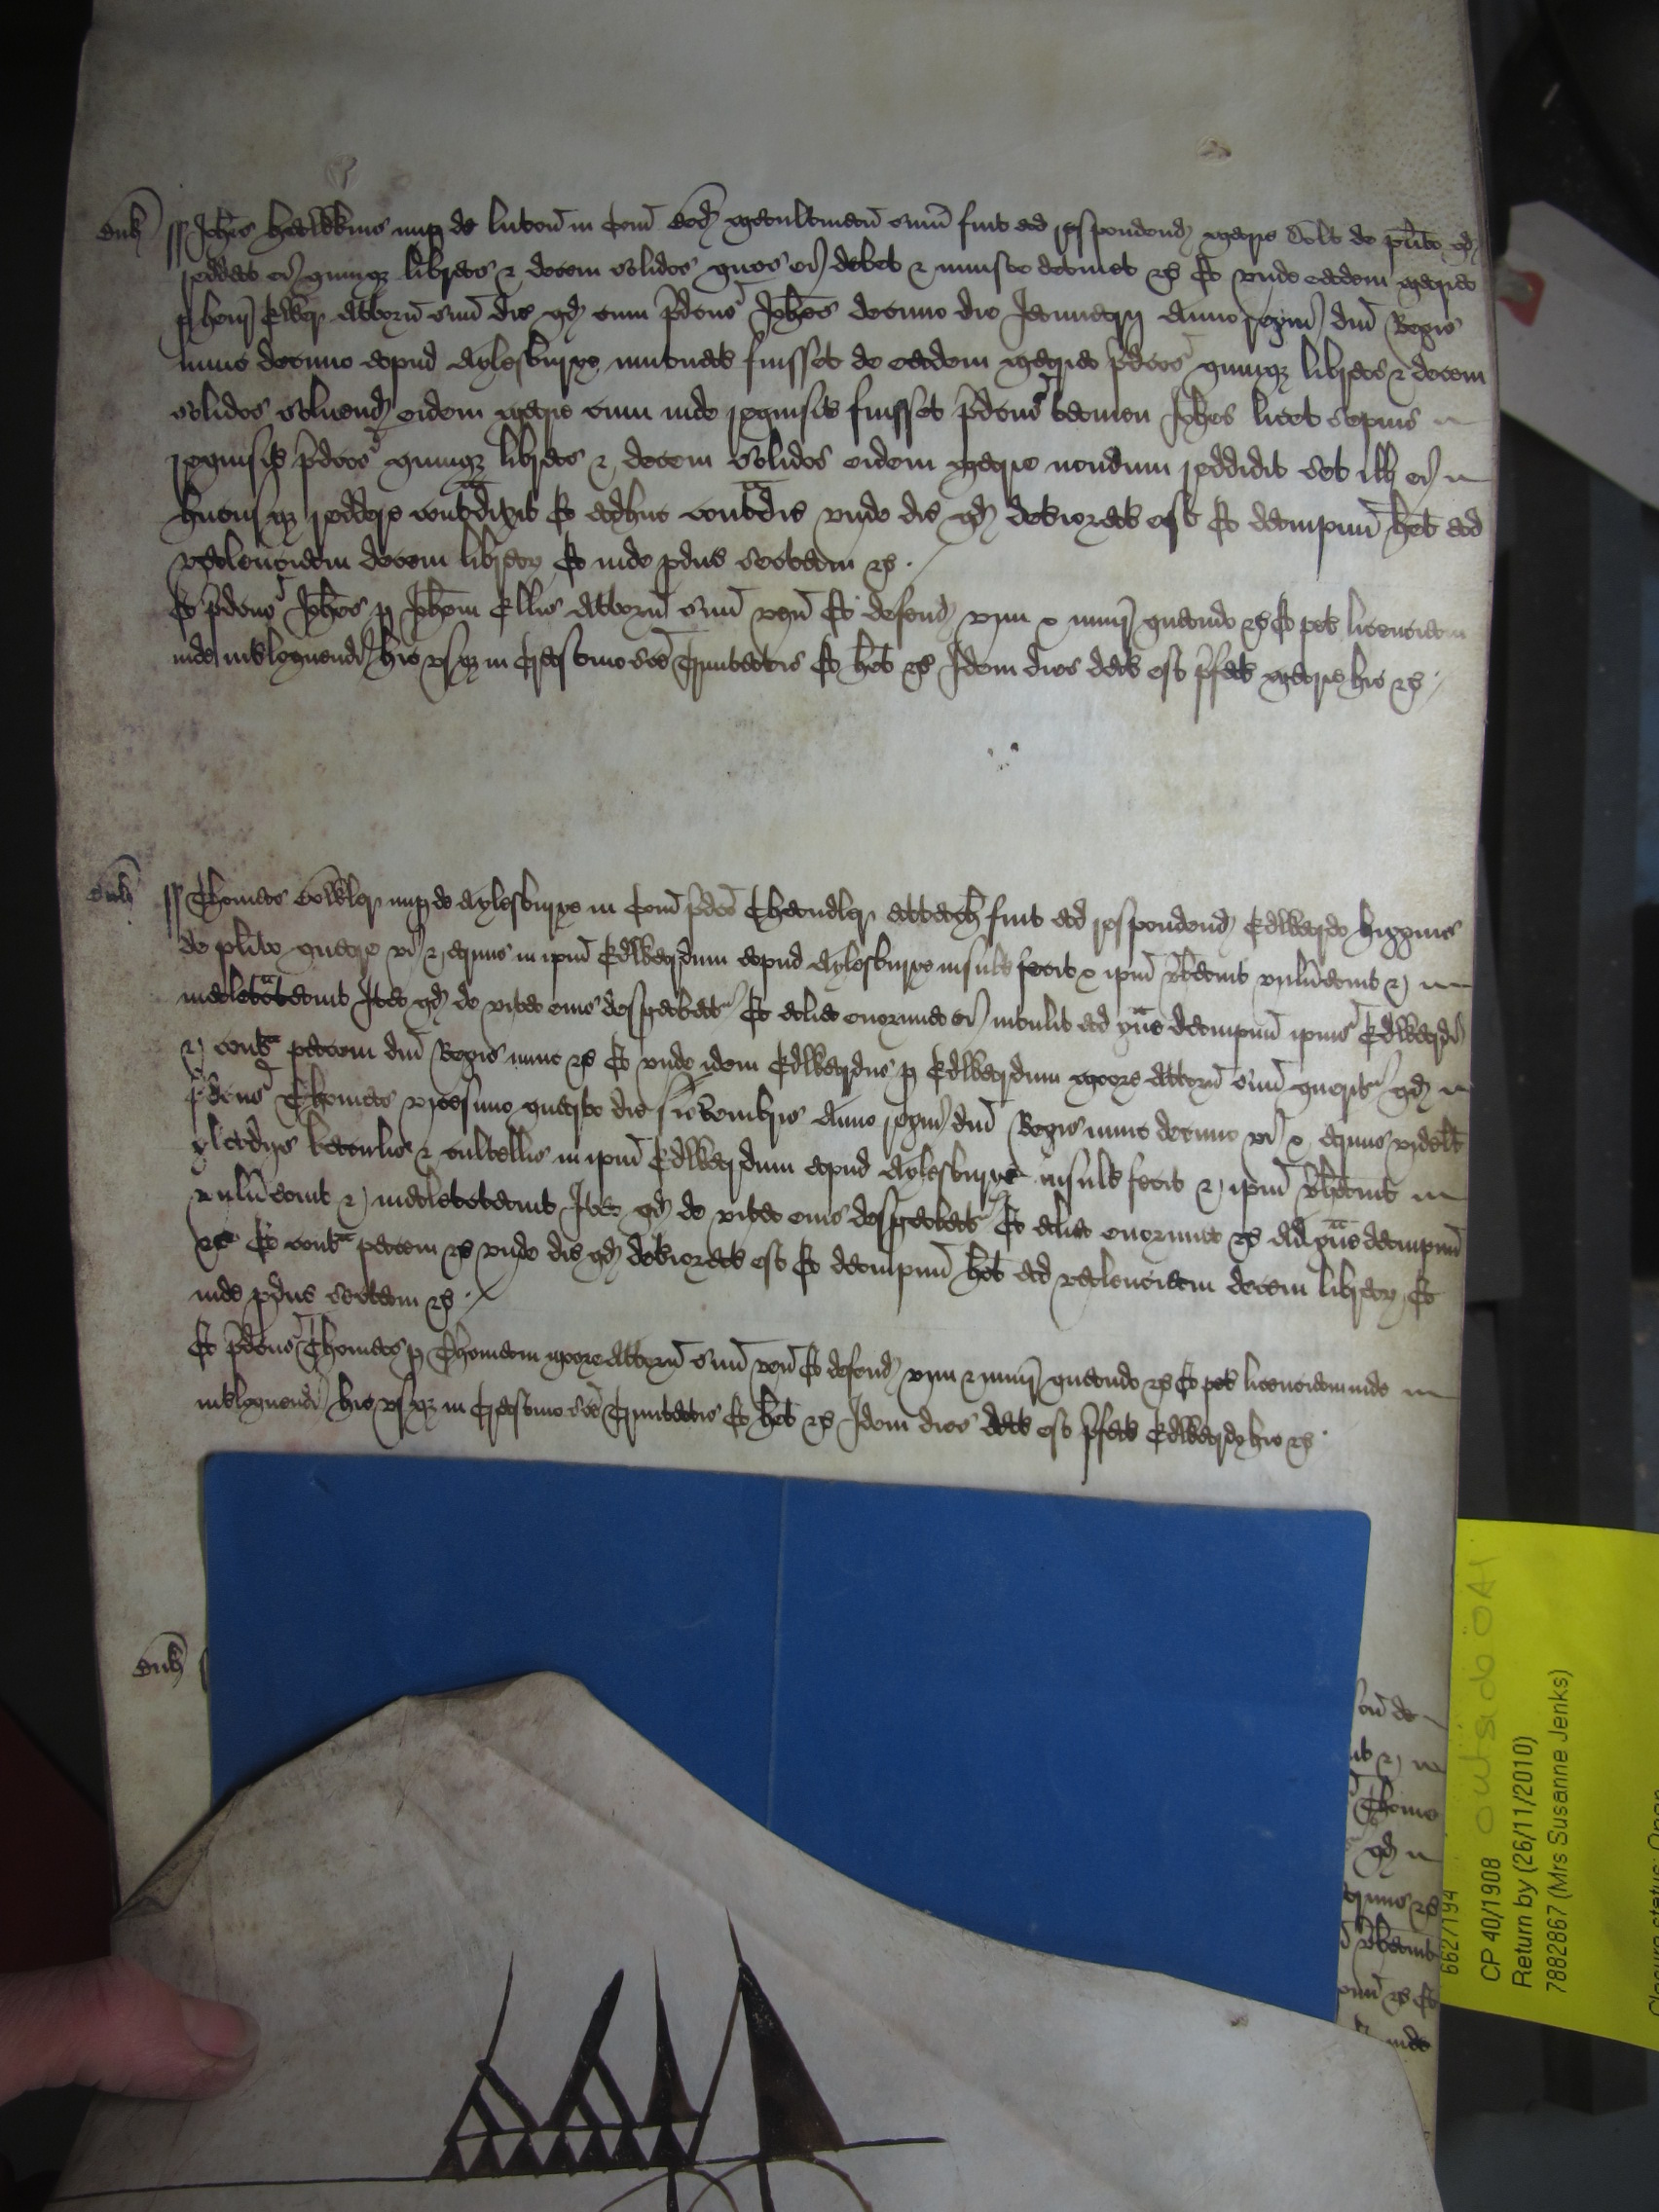 Buk
ss Johes Hawkkins nup de luton in Com Bed yeoman sum fuit ad respondend Marie Solt de plito qd
reddat ei quinqz libras & decem solidos quos ei debet & iniuste detinet &c Et unde eadem Maria
p henr Elker attorn suu dic qd cum pdcus Johes decimo die Januarii anno regni dni Regis
nunc decimo apud Aylesburye mutuat fuisset de eadem Maria pdcos quinqz libras & decem
solidos soluend eidem Marie cum inde requisit fuisset pdcus tamen Johes licet sepius
requisit pdcos quinqz libras & decem solidos eidem Marie nondum reddidit set ill ei
hucusqz reddere contradixit Et adhuc contradic unde dic qd deteriorat est Et dampnu het ad
valenciam decem librar Et inde pduc sectam &c
Et pdcus Johes p Johem Ellis attorn suu ven Et defend vim & iniur quando &c Et pet licenciam
inde interloquendi hic usqz in Crastino sce Trinitatis Et het &c Idem dies dat est pfat Marie hic &c
Buk
ss Thomas nup de Aylesburye in Com pdco Chandler attach fuit ad respondend Edwardo Higgins
de plito quare vi & armis in ipm Edwardum apud Aylesburye insult fecit & ipm vberauit vulnauit &
maletractauit Ita qd de vita eius desperabat Et alia enormia ei intulit ad graue dampnu ipius Edwardi
& contra pacem dni Regis nunc &c Et unde idem Edwardus p Edwardum Moore attorn suu querit qd
pdcus Thomas vicesimo quarto die anno regni dni Regis nunc decimo vi & armis videlt
gladiis baculis & cultellis in ipm Edwardum apud Aylesburye insult fecit & ipm vberauit
vulnauit & maletractauit Ita qd de vita eius desperabat Et alia enormia &c Ad graue dampnu
&c Et contra pacem &c unde dic qd deteriorat est Et dampnu het ad valenciam decem librar Et
inde pduc sectam &c
Et pdcus Thomas p Thomam Moore attorn suu ven Et defend vim & iniur quando &c Et pet licenciam inde
interloquendi hic usqz in Crastino sce Trinitatis Et het &c Idem dies dat est pfat Edwardo hic &c
Buk
de
Thome
qd
armis &c
vberauit
&c Et
inde
662/194
CP 40/1908 outsidöA1
Return by (26/11/2010)
7882867 (Mrs Susanne Jenks)
Closure status: Open